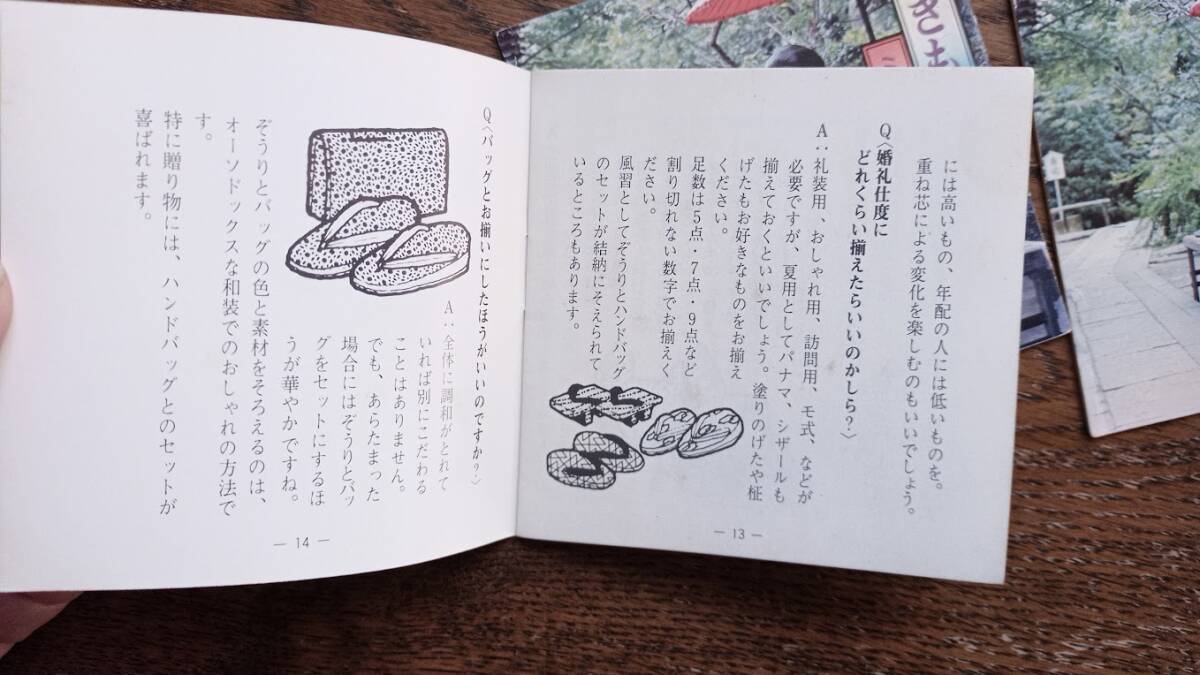 には高いもの、年配の人には低いものを。
重ね芯による変化を楽しむのもいいでしょう。
Q〈婚礼仕度に
どれくらい揃えたらいいのかしら？〉
A：礼装用、おしゃれ用、訪問用、モ式、などが
必要ですが、夏用としてパナマ、シザールも
揃えておくといいでしょう。塗りのげたや桩
げたもお好きなものをお揃え
ください。
足数は5点・7点・9点など
割り切れない数字でお揃えく
ださい。
風習としてぞうりとハンドバッグ
のセットが結納にそえられて
いるところもあります。
— 13 —
Q〈バッグとお揃いにしたほうがいいのですか？〉
A：全体に調和がとれて
いれば別にこだわる
ことはありません。
でも、あらたまった
場合にはぞうりとバッ
グをセットにするほ
うが華やかですね。
ぞうりとバッグの色と素材をそろえるのは、
オーソドックスな和装でのおしゃれの方法で
す。
特に贈り物には、ハンドバッグとのセットが
喜ばれます。
— 14 —